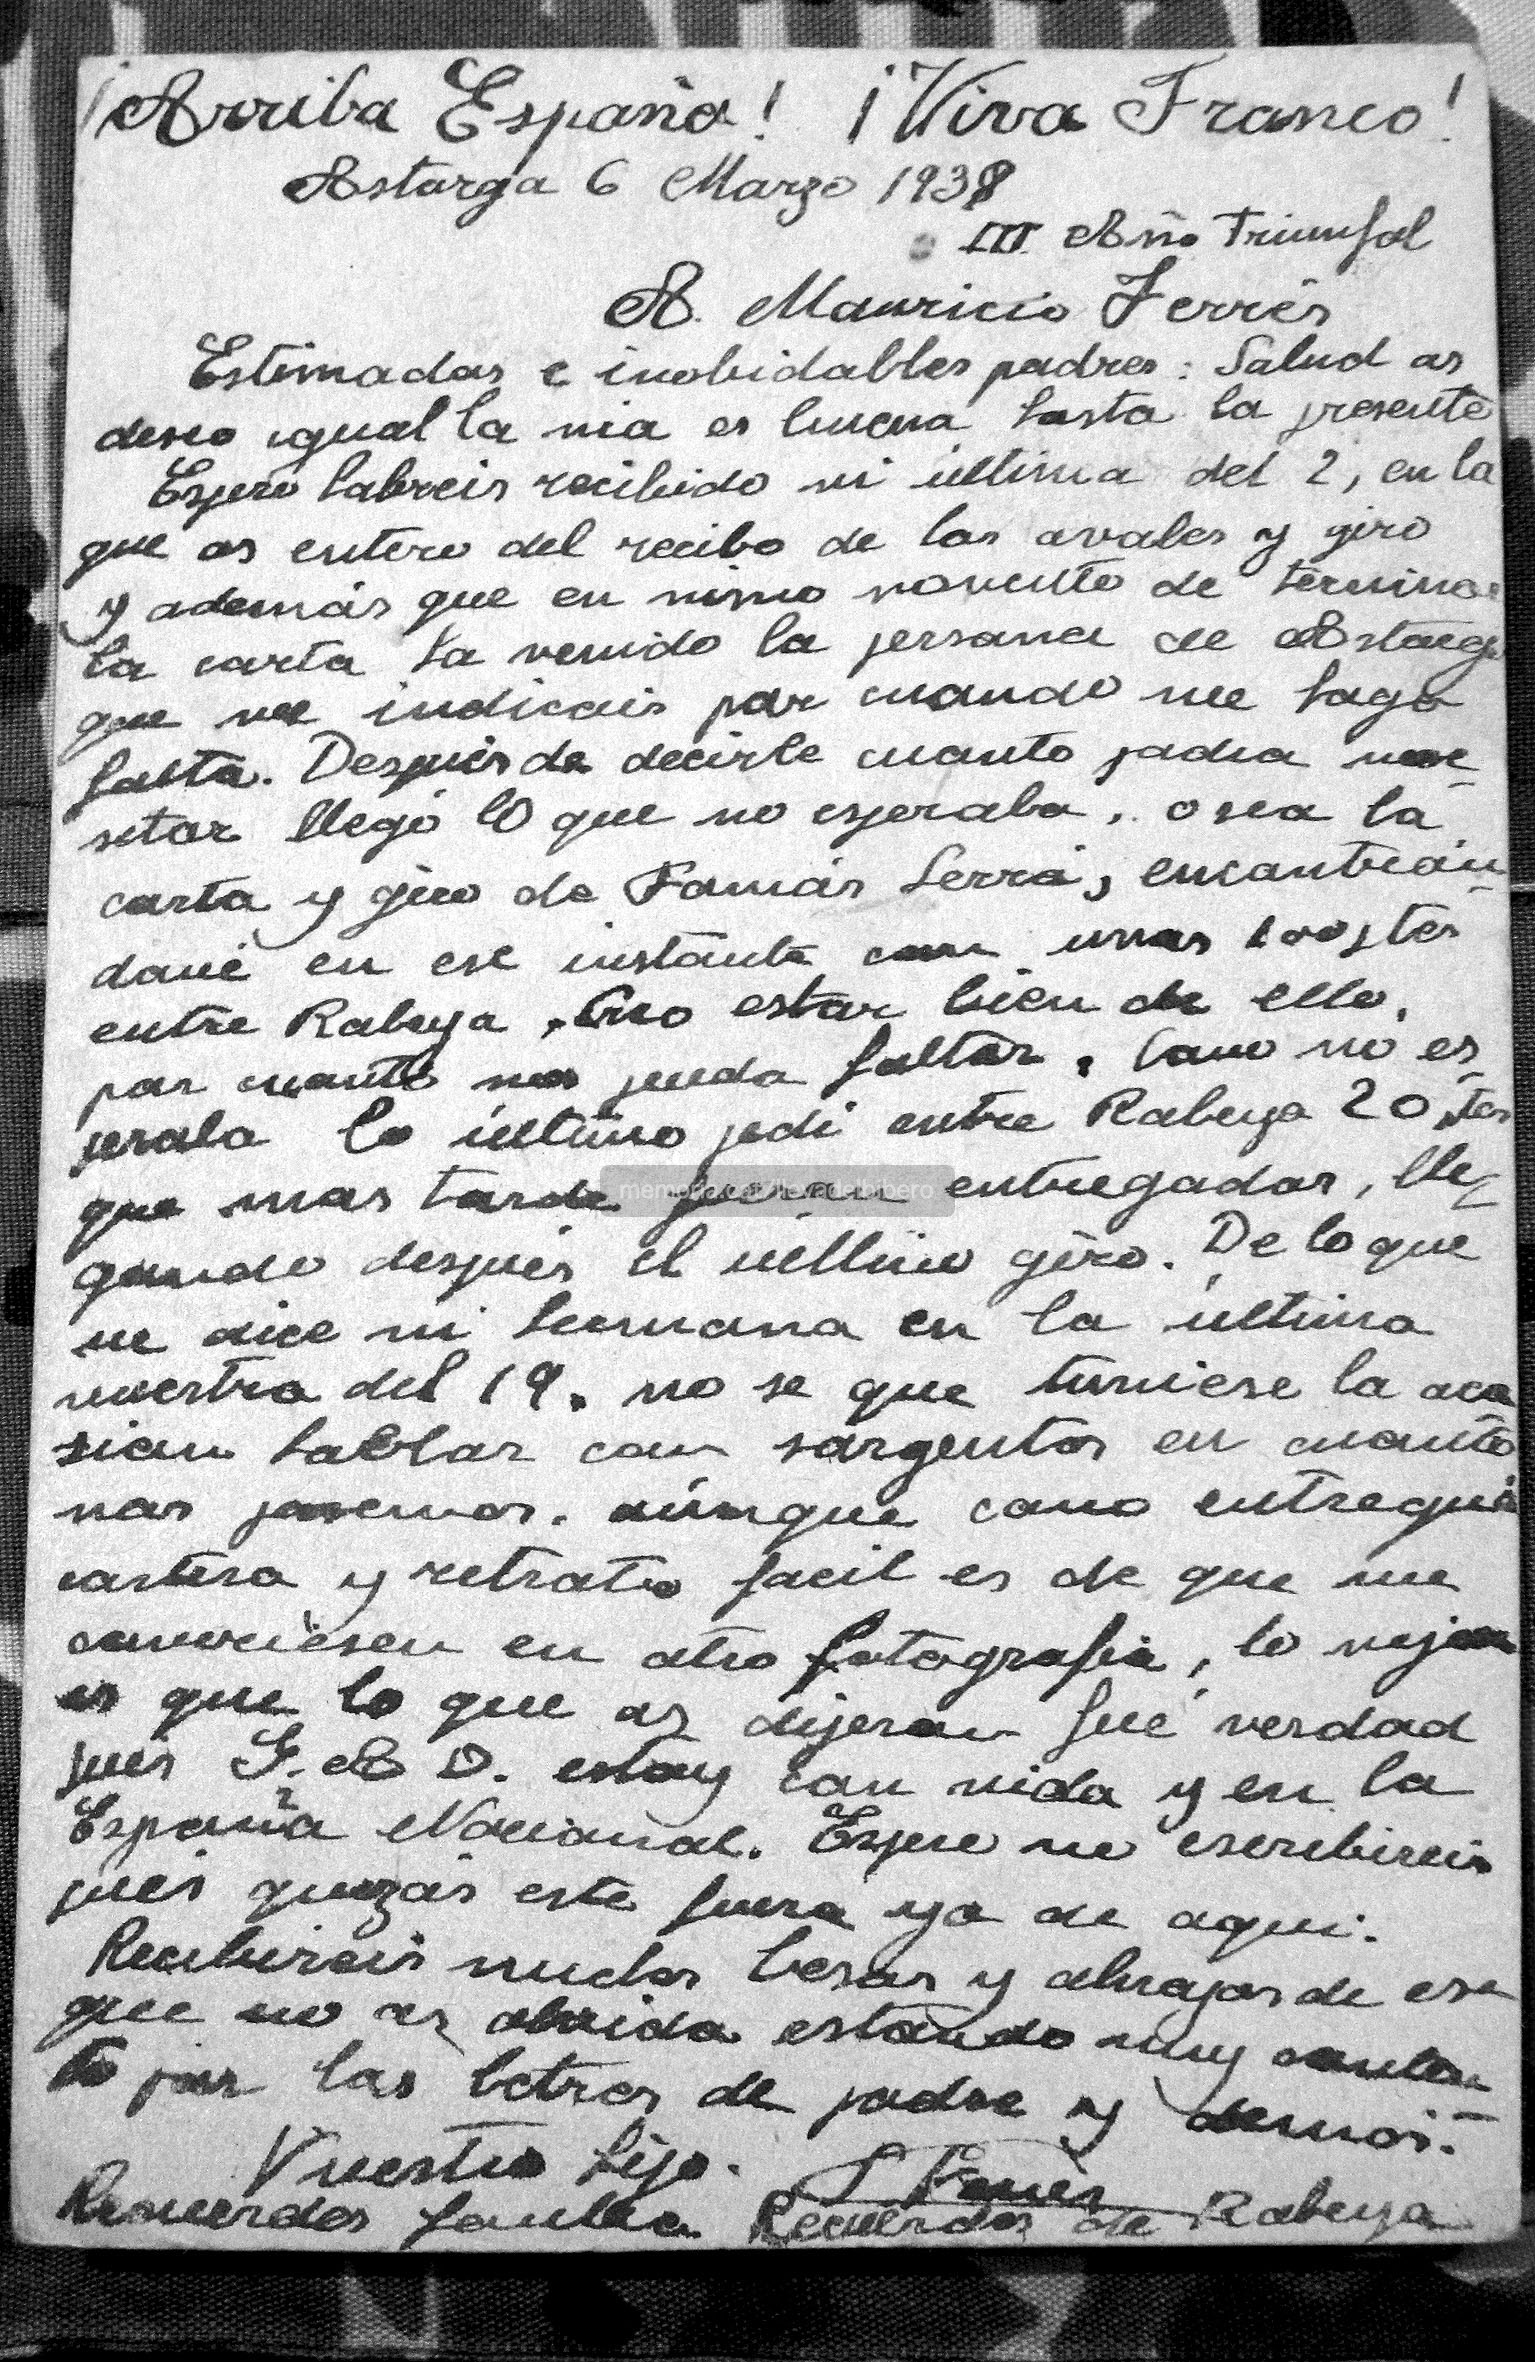 ¡Arriba España! ¡Viva Franco!
Astorga 6 Marzo 1938
III Año Triunfal
A. Mauricio Ferrés
Estimados e inobidables padres: Salud os
deseo igual la mia es buena hasta la presente
Espero habreis recibido mi última del 2, en la
que os entero del recibo de los avales y giro
y además que en mismo momento de terminar
la carta ha venido la persona de Astorga
que me indicais por cuando me haga
falta. Después de decirle cuanto podia nece
sitar llegó lo que no esperaba, o sea la
carta y giro de Tomás Serra, encontrán-
dome en ese instante con unas 100 ptes
entre Rabeya. Creo estar bien de ello,
por cuanto nos pueda faltar. Como no es
peraba lo último pedi entre Rabeya 20 ptas
que mas tarde fueron entregadas, lle-
gando después el último giro. De lo que
me dice mi hermana en la última
vuestra del 19. no se que tuviese la oca
sion hablar con sargentos en cuanto
nos pasemos. aúnque como entregué
cartera y retratos facil es de que me
conociesen en otra fotografia, lo mejor
es que lo que os dijeron fué verdad
pués G. A D. estoy con vida y en la
España Nacional. Espero me escribireis
pués quizás esté fuera ya de aqui.
Recibireis muchos besos y abrazos de ese
que no os olvida estando muy conten-
to por las letras de padre y demás.
Vuestro hijo. Ferrés
Recuerdos familia Recuerdos de Rabeya